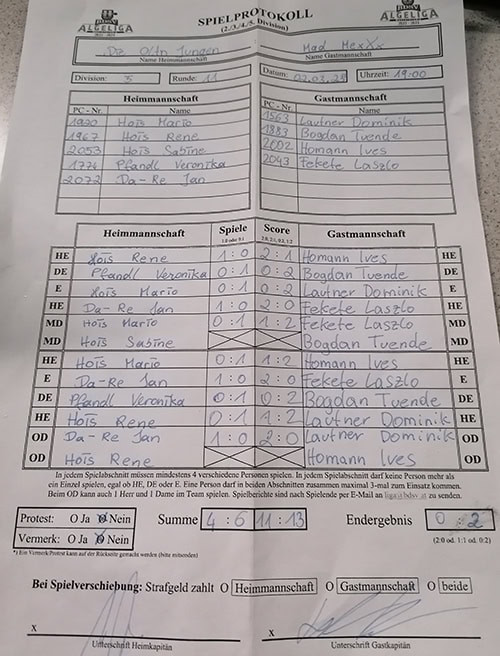 ALGELIGA SPIELPROTOKOLL ALGELIGA
(2./3./4./5. Division)
Da O/In Jungen Mad MexXx
Name Heimmannschaft Name Gastmannschaft
Division: 5 Runde: 11 Datum: 02.03.23 Uhrzeit: 19:00
Heimmannschaft Gastmannschaft
PC - Nr. Name PC - Nr. Name
1920 Hois Mario 1563 Lautner Dominik
1967 Hois Rene 1883 Bogdan Tuende
2053 Hois Sabine 2002 Homann Ives
1774 Pfandl Veronika 2043 Fekete Laszlo
2072 Da-Re Jan
Heimmannschaft Spiele Score Gastmannschaft
1:0 oder 0:1 2:0, 2:1, 0:2, 1:2
HE Hois Rene 1:0 2:1 Homann Ives HE
DE Pfandl Veronika 0:1 0:2 Bogdan Tuende DE
E Hois Mario 0:1 0:2 Lautner Dominik E
HE Da-Re Jan 1:0 2:0 Fekete Laszlo HE
MD Hois Mario 0:1 1:2 Fekete Laszlo MD
MD Hois Sabine Bogdan Tuende MD
HE Hois Mario 0:1 1:2 Homann Ives HE
E Da-Re Jan 1:0 2:0 Fekete Laszlo E
DE Pfandl Veronika 0:1 0:2 Bogdan Tuende DE
HE Hois Rene 0:1 1:2 Lautner Dominik HE
OD Da-Re Jan 1:0 2:0 Lautner Dominik OD
OD Hois Rene Homann Ives OD
In jedem Spielabschnitt müssen mindestens 4 verschiedene Personen spielen. In jedem Spielabschnitt darf keine Person mehr als
ein Einzel spielen, egal ob HE, DE oder E. Eine Person darf in beiden Abschnitten zusammen maximal 3-mal zum Einsatz kommen.
Beim OD kann auch 1 Herr und 1 Dame im Team spielen. Spielberichte sind nach Spielende per E-Mail an liga@bdsv.at zu senden.
Protest: O Ja O Nein Summe 4:6 11:13 Endergebnis 0:2
Vermerk: O Ja O Nein (2:0 od. 1:1 od. 0:2)
*) Ein Vermerk/Protest kann auf der Rückseite gemacht werden (bitte mitsenden)
Bei Spielverschiebung: Strafgeld zahlt O Heimmannschaft O Gastmannschaft O beide
X X
Unterschrift Heimkapitän Unterschrift Gastkapitän